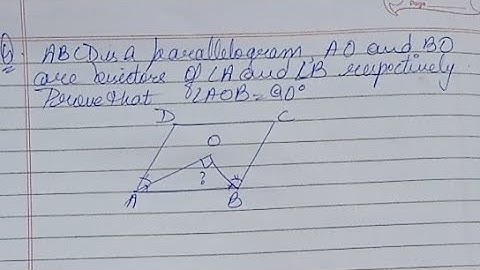 Page
Q. ABCD is a parallelogram. AO and BO
are bisectors of ∠A and ∠B respectively.
Prove that ∠AOB = 90°
D C
O
?
A B